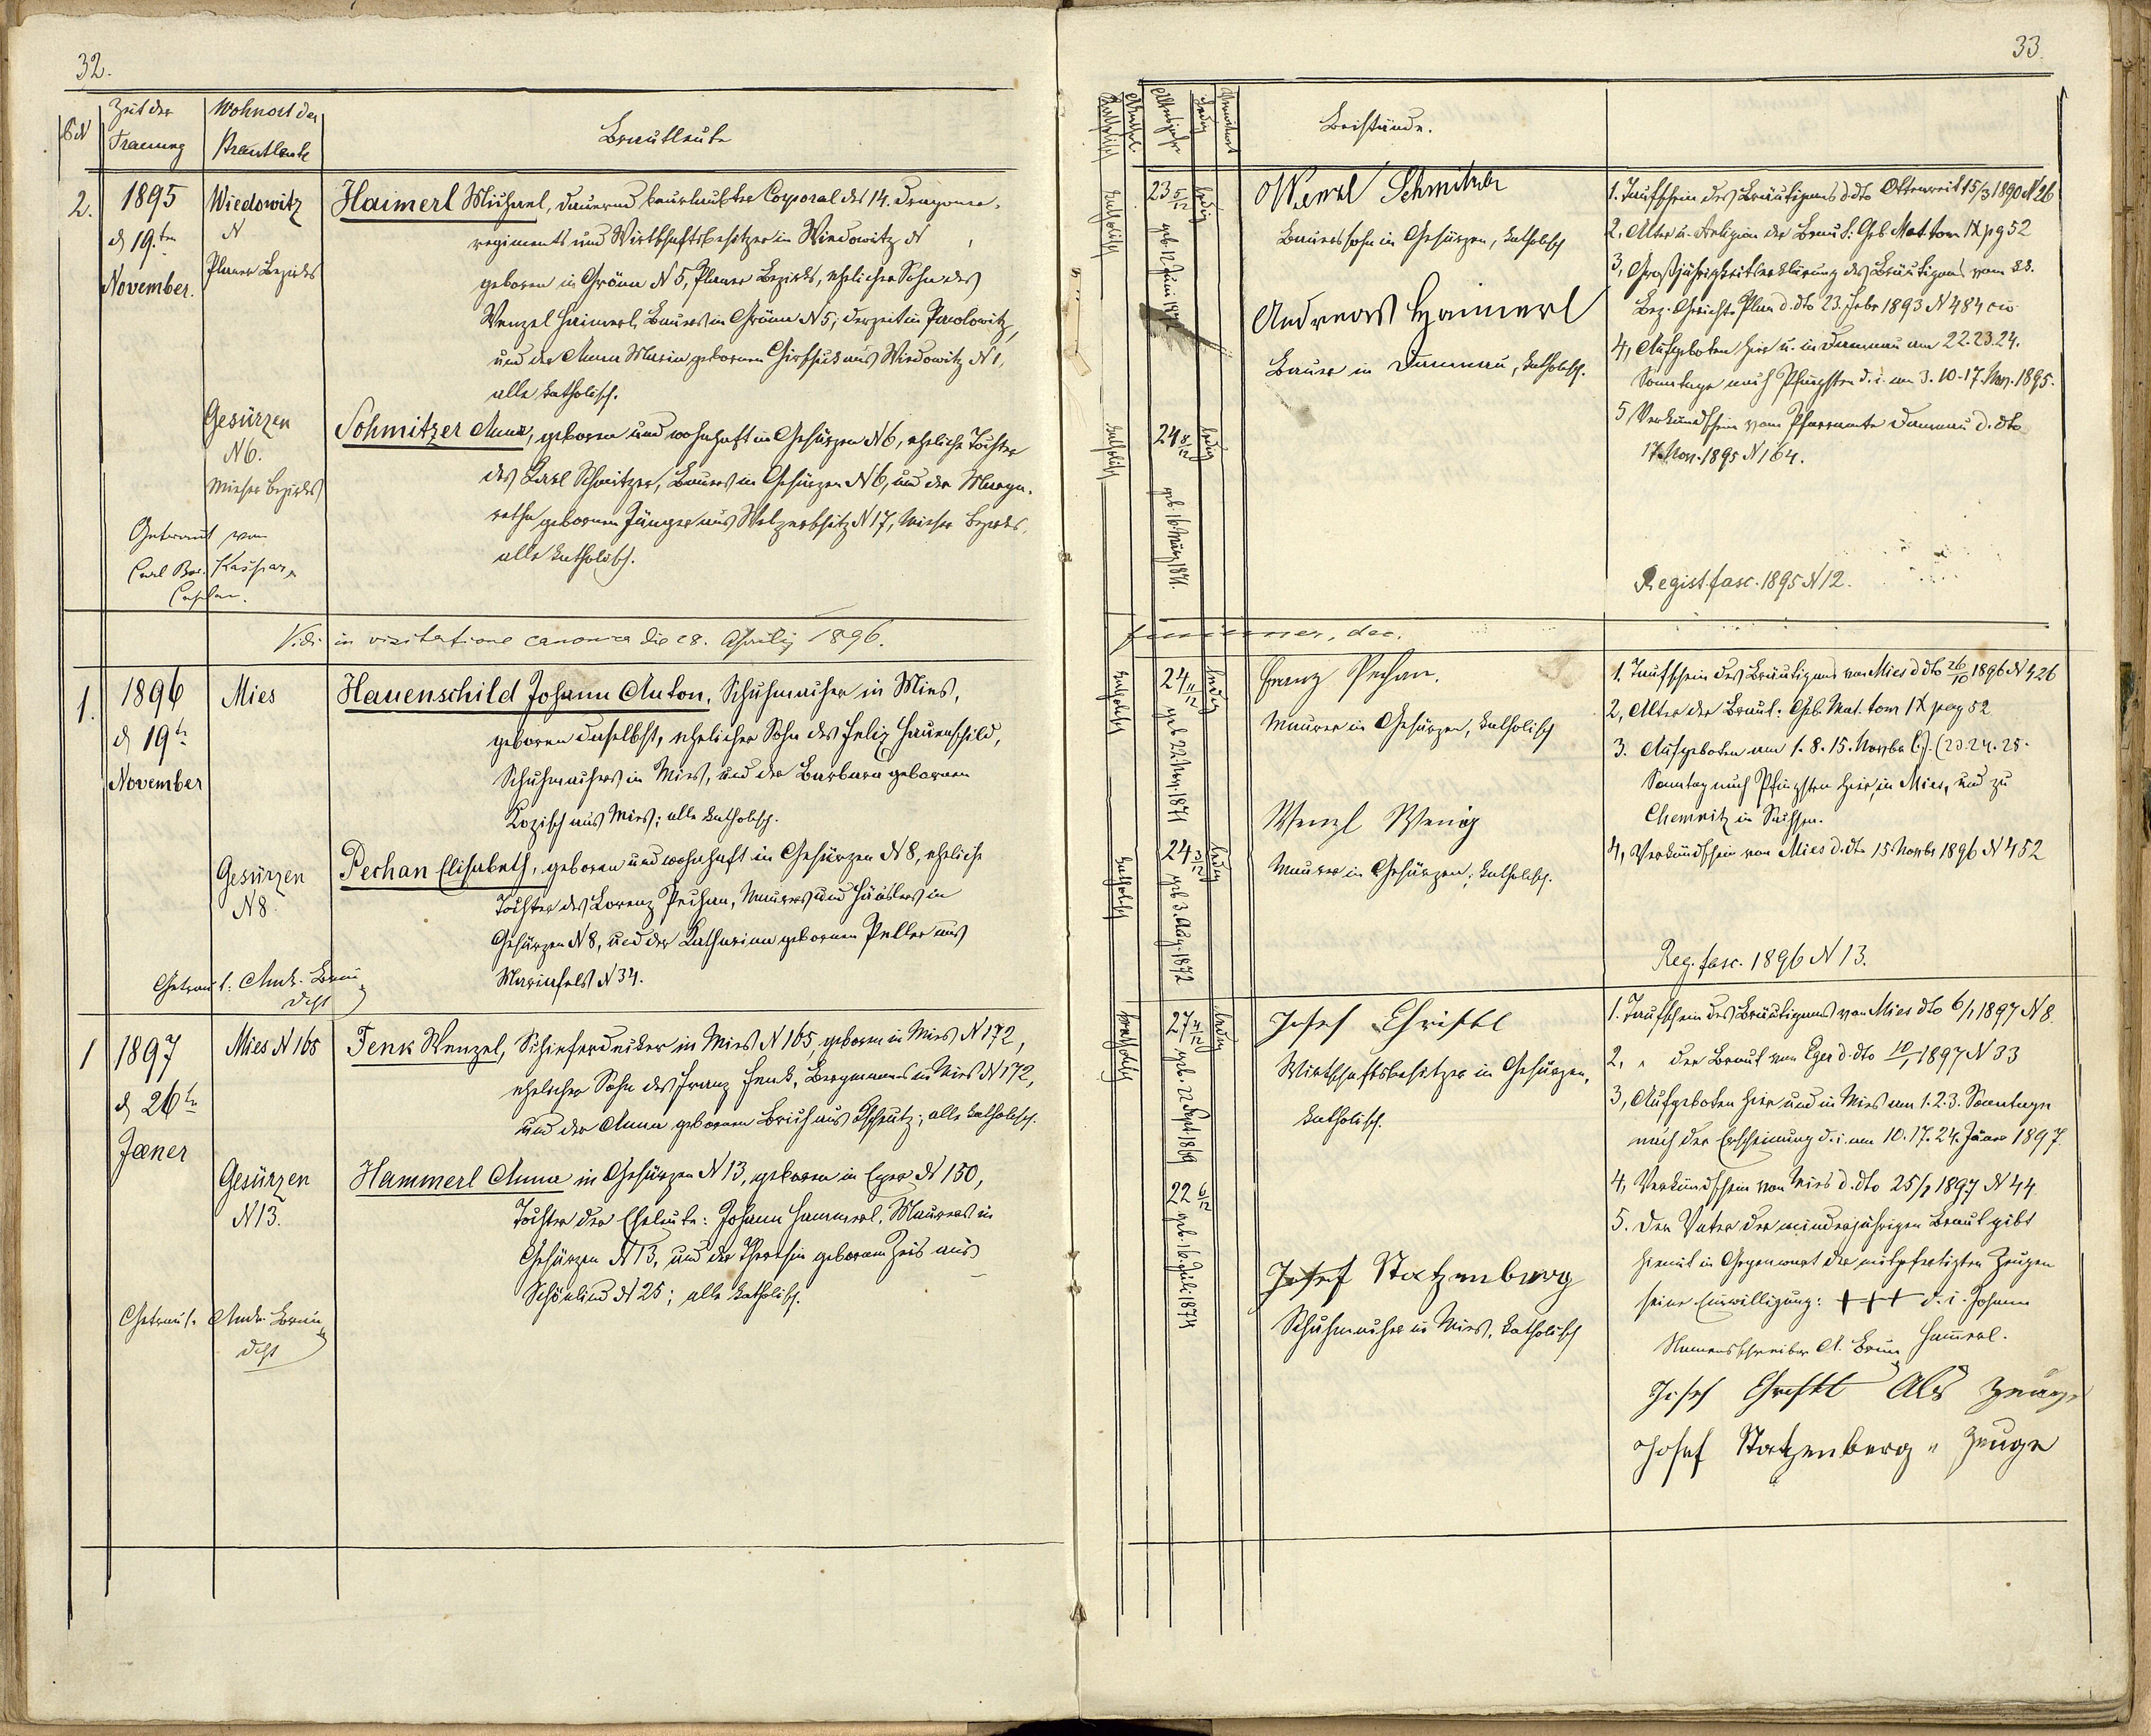 32.
Zeit der
Trauung
Wohnort der
Brautleute
Brautleute
2.
1895
d 19.ten
November.
Wiedowitz
N
Planer Bezirks
Haimerl Michael, dauernd beurlaubter Corporal des 14. Dragoner-
regiments und Wirthschaftsbesitzer in Wiedowitz N ,
geboren in Gröna N 5, Planer Bezirks, ehelicher Sohn des
Wenzel Haimerl, Bauers in Gröna N 5, derzeit in
und der Anna Maria gebornen aus Wiedowitz N 1,
alle katholisch.
Gesürzen
N 6.
Mieser Bezirks
Schmitzer Anna, geboren und wohnhaft in Gesürzen N 6, eheliche Tochter
des Karl Schmitzer, Bauers in Gesürzen N 6, und der Marga-
retha gebornen Jünger aus N 17, Mieser Bezirks,
alle katholisch.
Getraut von
Carl Bor. Kaspar,
Caplan.
Vidi in visitatione canonica die 28. Aprilis 1896.
1.
1896
d 19t
November
Mies
Hauenschild Johann Anton, Schuhmacher in Mies,
geboren daselbst, ehelicher Sohn des Felix Hauenschild,
Schuhmachers in Mies, und der Barbara gebornen
Kozisch aus Mies; alle katholisch.
Gesürzen
N 8
Pechan Elisabeth, geboren und wohnhaft in Gesürzen N 8, eheliche
Tochter des Lorenz Pechan, Maurers und Häuslers in
Gesürzen N 8, und der Katharina gebornen Peller aus
Mariafels N 34.
Getraut: Andr.
Dcht
1
1897
d 26t
Jæner
Mies N 165
Fenk Wenzel, Schieferdecker in Mies N 165, geboren in Mies N 172,
ehelicher Sohn des Franz Fenk, Bergmanns in Mies N 172,
und der Anna gebornen aus ; alle katholisch.
Gesürzen
N 13.
Hammerl Anna in Gesürzen N 13, geboren in Eger N 150,
Tochter der Eheleute: Johann Hammerl, Maurers in
Gesürzen N 13, und der Theresia gebornen Zeis aus
Schönlind N 25; alle katholisch.
Getraut: Andr.
Dcht
33.
Katholisch
Altersjahre
ledig
Verwitwet
Beistände.
katholisch
23 5/12
geb. 12 Juni 1872
ledig
Wenzl Schmitzer
Bauerssohn in Gesürzen, katholisch
Andreas Haimerl
Bauer in Damnau, katholisch.
katholisch
24 8/12
geb. 16. März 1871.
ledig
1. Taufschein des Bräutigams d. dto Ottenreit 15/3 1890 N 26
2. Alter u. Religion der Braut: Geb. Mat. tom IX pg 52
3, Großjährigkeitserklärung des Bräutigams vom k.k.
Bez. Gerichte Plan d. dto 23. Febr 1893 N 484 civ
4, Aufgeboten hier u. in Damnau am 22. 23. 24.
Sonntage nach Pfingsten d. i. am 3. 10. 17. Nov. 1895.
5 Verkündschein vom Pfarramte Damnau d. dto
17. Nov. 1895 N 164.
Regist. fasc. 1895 N 12.
katholisch
24 11/12
geb 22. Nov. 1871
ledig
Franz Pechan.
Maurer in Gesürzen, katholisch
Wenzl Wenig
Maurer in Gesürzen; katholisch.
katholisch
24 3/12
geb 3. Aug. 1872
ledig
1. Taufschein des Bräutigams von Mies d dto 26/10 1896 N 426
2, Alter der Braut: Geb. Mat. tom IX pag 52
3. Aufgeboten am 1. 8. 15. Novbr l. J. (23. 24. 25.
Sonntag nach Pfingsten hier, in Mies, und zu
Chemnitz in Sachsen.
4, Verkündschein von Mies d. dto 15. Novbr 1896 N 452
Reg. fasc. 1896 N 13.
katholisch
27 4/12
geb. 22 Sept. 1869
ledig
Josef Christl
Wirthschaftsbesitzer in Gesürzen,
katholisch.
22 6/12
geb. 16. Juli 1874
Josef Statzenberg
Schuhmacher in Mies, katholisch
1. Taufschein des Bräutigams von Mies dto 6/1 1897 N 8.
2, " der Braut von Eger d. dto 10/1 1897 N 33
3, Aufgeboten hier und in Mies am 1. 2. 3. Sonntage
nach der Erscheinung d. i. am 10. 17. 24. Jäner 1897.
4, Verkündschein von Mies d. dto 25/1 1897 N 44
5. Der Vater der minderjährigen Braut gibt
hiemit in Gegenwart der mitgefertigten Zeugen
seine Einwilligung: +++ d. i. Johann
Namensschreiber A. Hammerl.
Josef Christl Als Zeuge
Josef Statzenberg " Zeuge